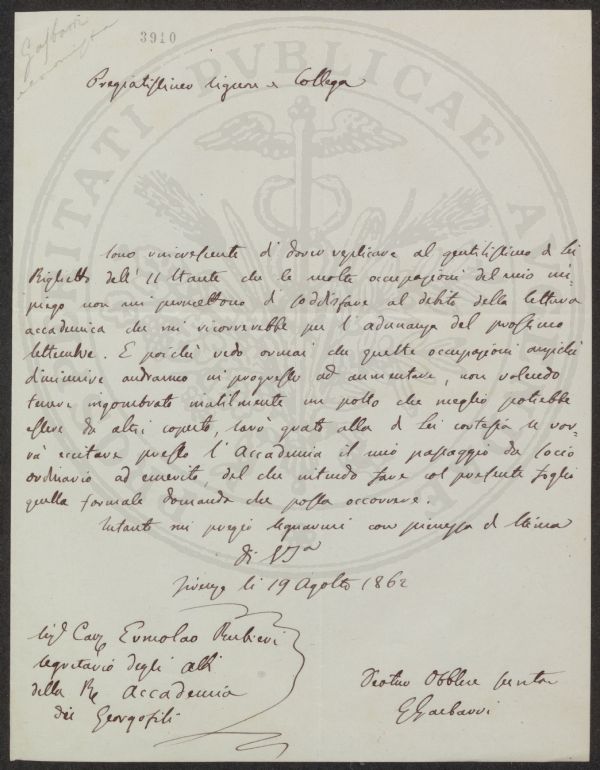 Gasbarri
3910
Pregiatissimo Signore e Collega
Sono rincrescente di dover replicare al gentilissimo di Lei
Biglietto dell' 11 stante che le molte occupazioni del mio im=
piego non mi permettono di soddisfare al debito della lettura
accademica che mi ricorrerebbe per l'adunanza del prossimo
settembre. E poichè vedo ormai che queste occupazioni anzichè
diminuire andranno in progresso ad aumentare, non volendo
tenere ingombrato inutilmente un posto che meglio potrebbe
essere da altri coperto, sarò grato alla di Lei cortesia se vor=
rà eccitare presso l'Accademia il mio passaggio da socio
ordinario ad emerito, del che intendo fare col presente foglio
quella formale domanda che possa occorrere.
Intanto mi pregio segnarmi con pienezza di stima
Di V.S.a
Firenze li 19 Agosto 1862
Sig.r Cav. Ermolao Rubieri
Segretario degli atti
della R.e Accademia
dei Georgofili
Devotmo Obblmo
G Gasbarri